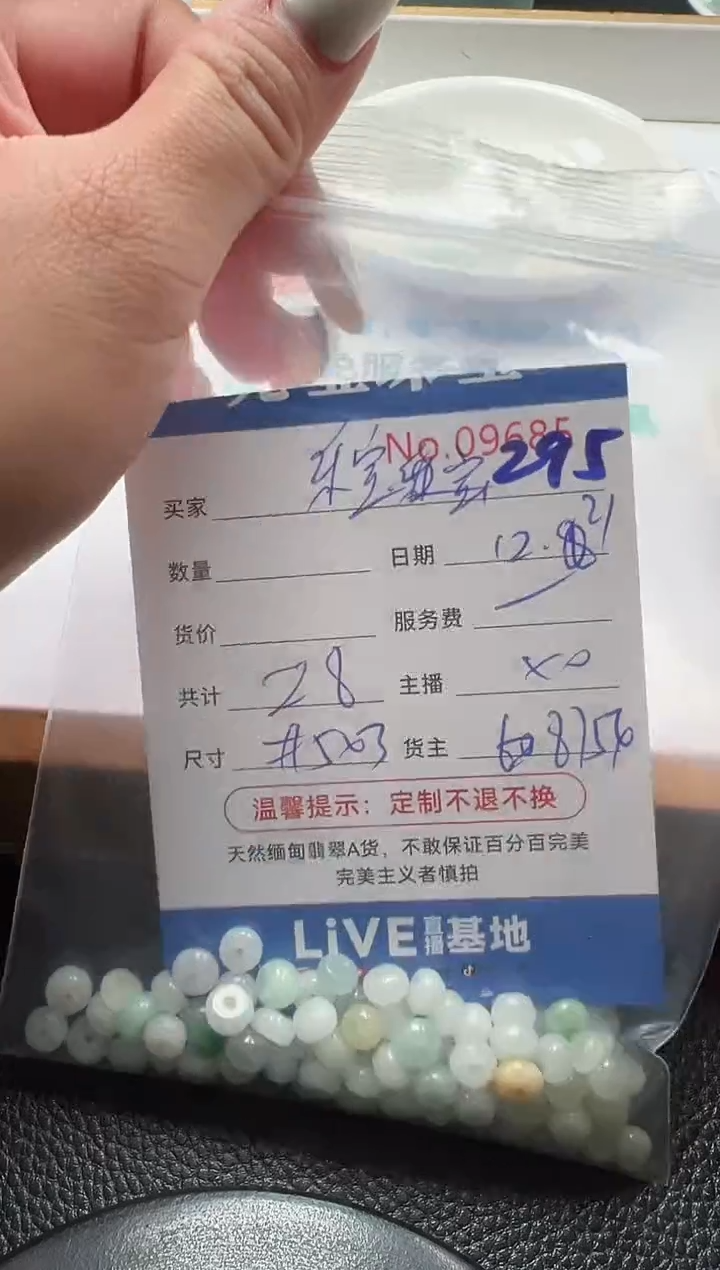 No.09685
295
买家
数量 日期 12. 21
货价 服务费
共计 28 主播 XO
尺寸 #503 货主
温馨提示：定制不退不换
天然缅甸翡翠A货，不敢保证百分百完美
完美主义者慎拍
LiVE直播基地